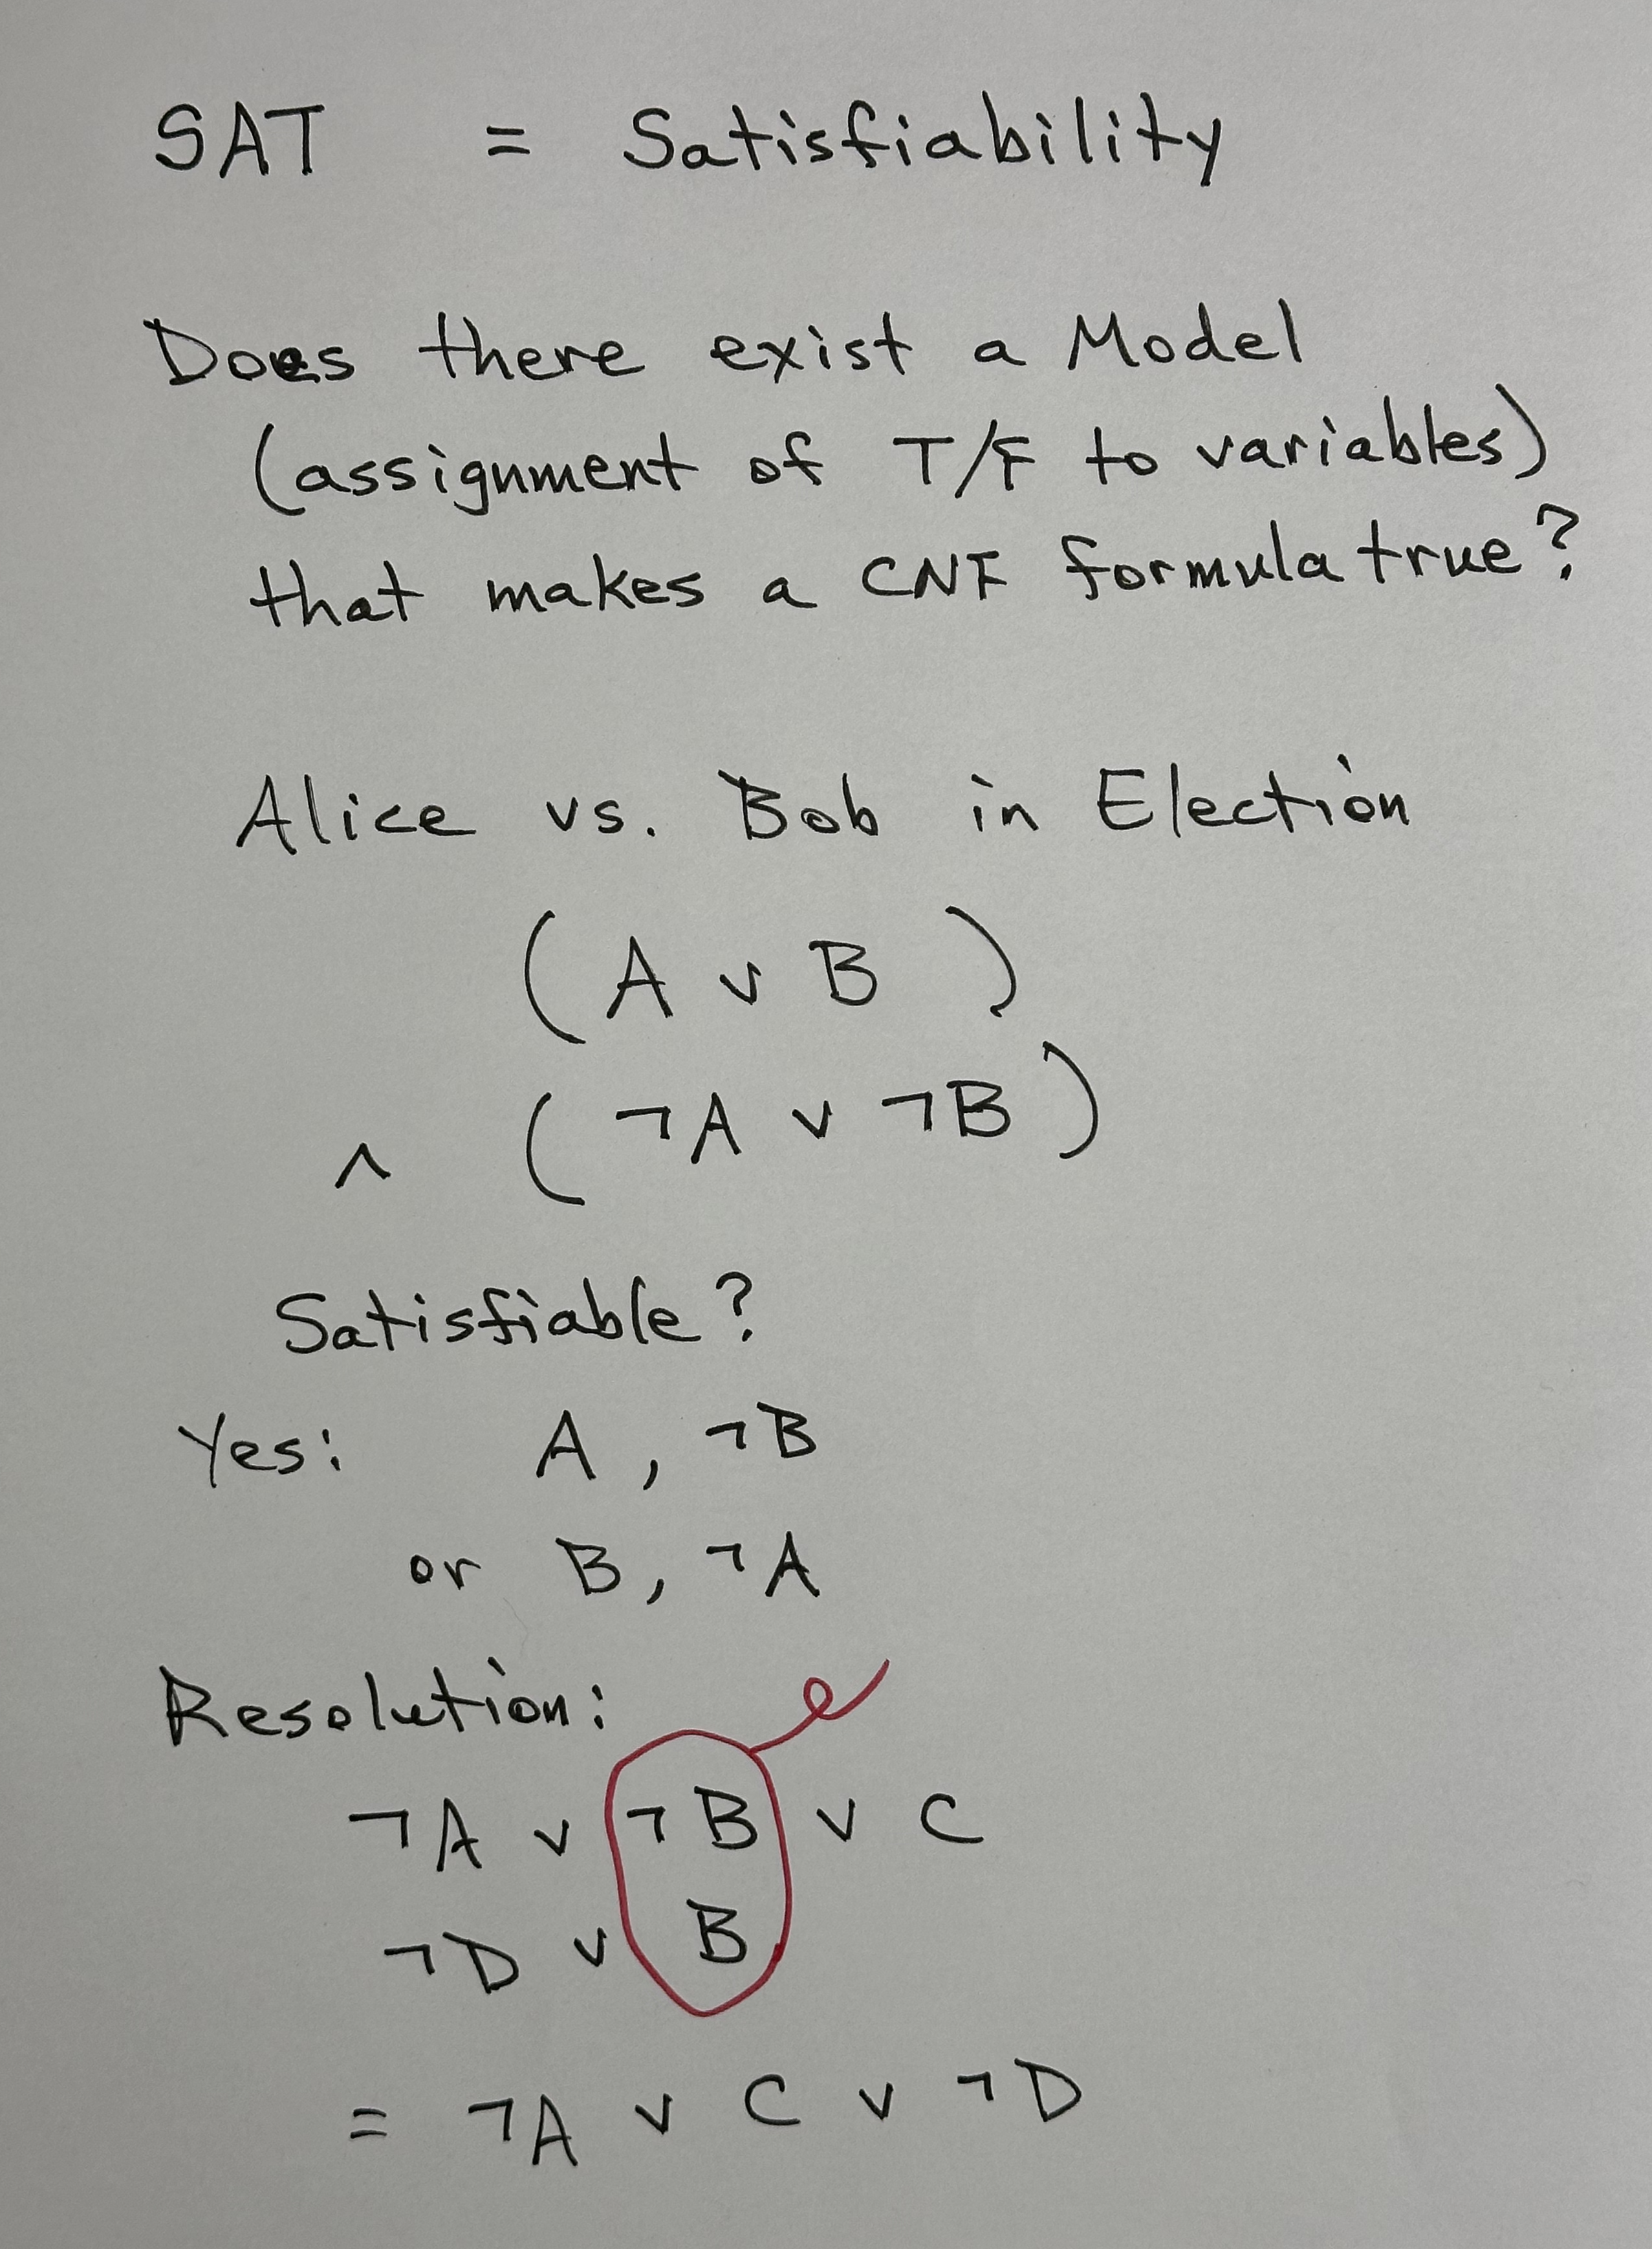 SAT = Satisfiability
Does there exist a Model
(assignment of T/F to variables)
that makes a CNF formula true?
Alice vs. Bob in Election
( A ∨ B )
∧ ( ¬A ∨ ¬B )
Satisfiable?
Yes: A , ¬B
or B, ¬A
Resolution:
¬A ∨ ¬B ∨ C
¬D ∨ B
= ¬A ∨ C ∨ ¬D